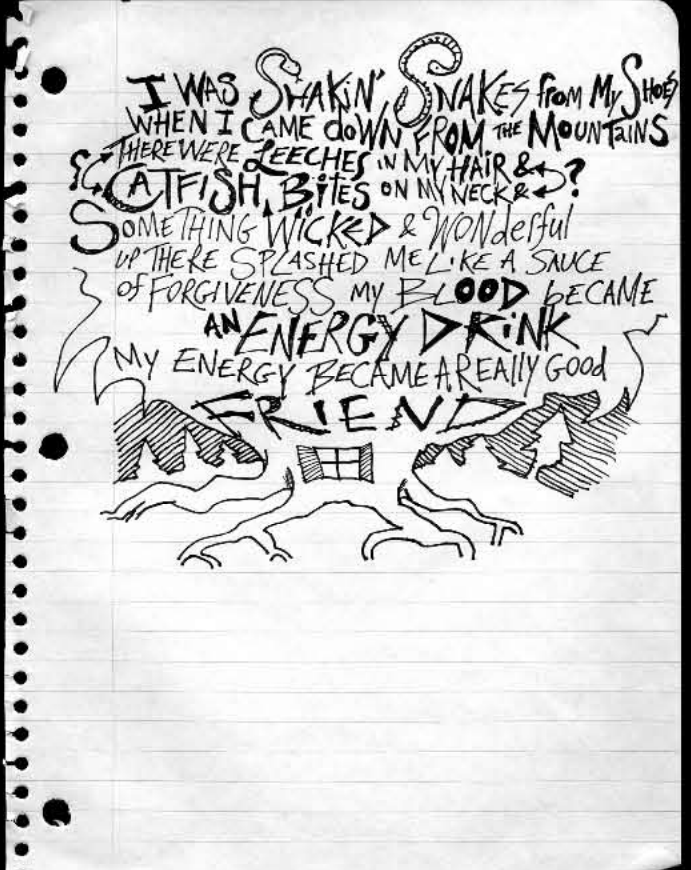 I WAS SHAKiN' SNAKES from MY SHOES
WHEN I CAME doWN FROM THE MOUNTaiNS
THERE WERE LEECHES iN MY HAIR &
CATFiSH BiTES ON MY NECK & ?
SOMETHING WiCKED & WONderful
UP THERE SPLASHED ME LiKE A SAUCE
of FORGIVENESS MY BLOOD bECAME
AN ENERGY DRiNK
MY ENERGY BECAME A REAllY GOod
FRIEND